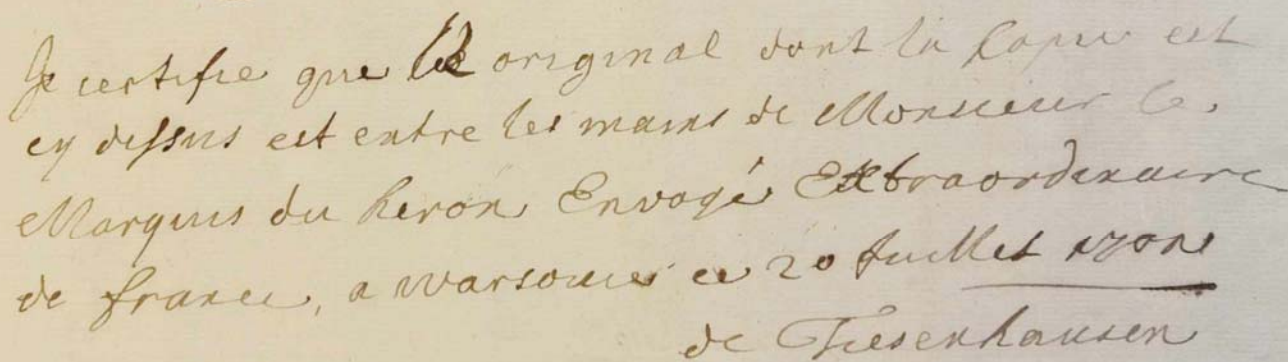 Je certifie que le original dont la Copie est
cy dessus est entre les mains de Monsieur le
Marquis du heron Envoyé Extraordinaire
de france, a warsovie ce 20 Juillet
de Tiesenhausen